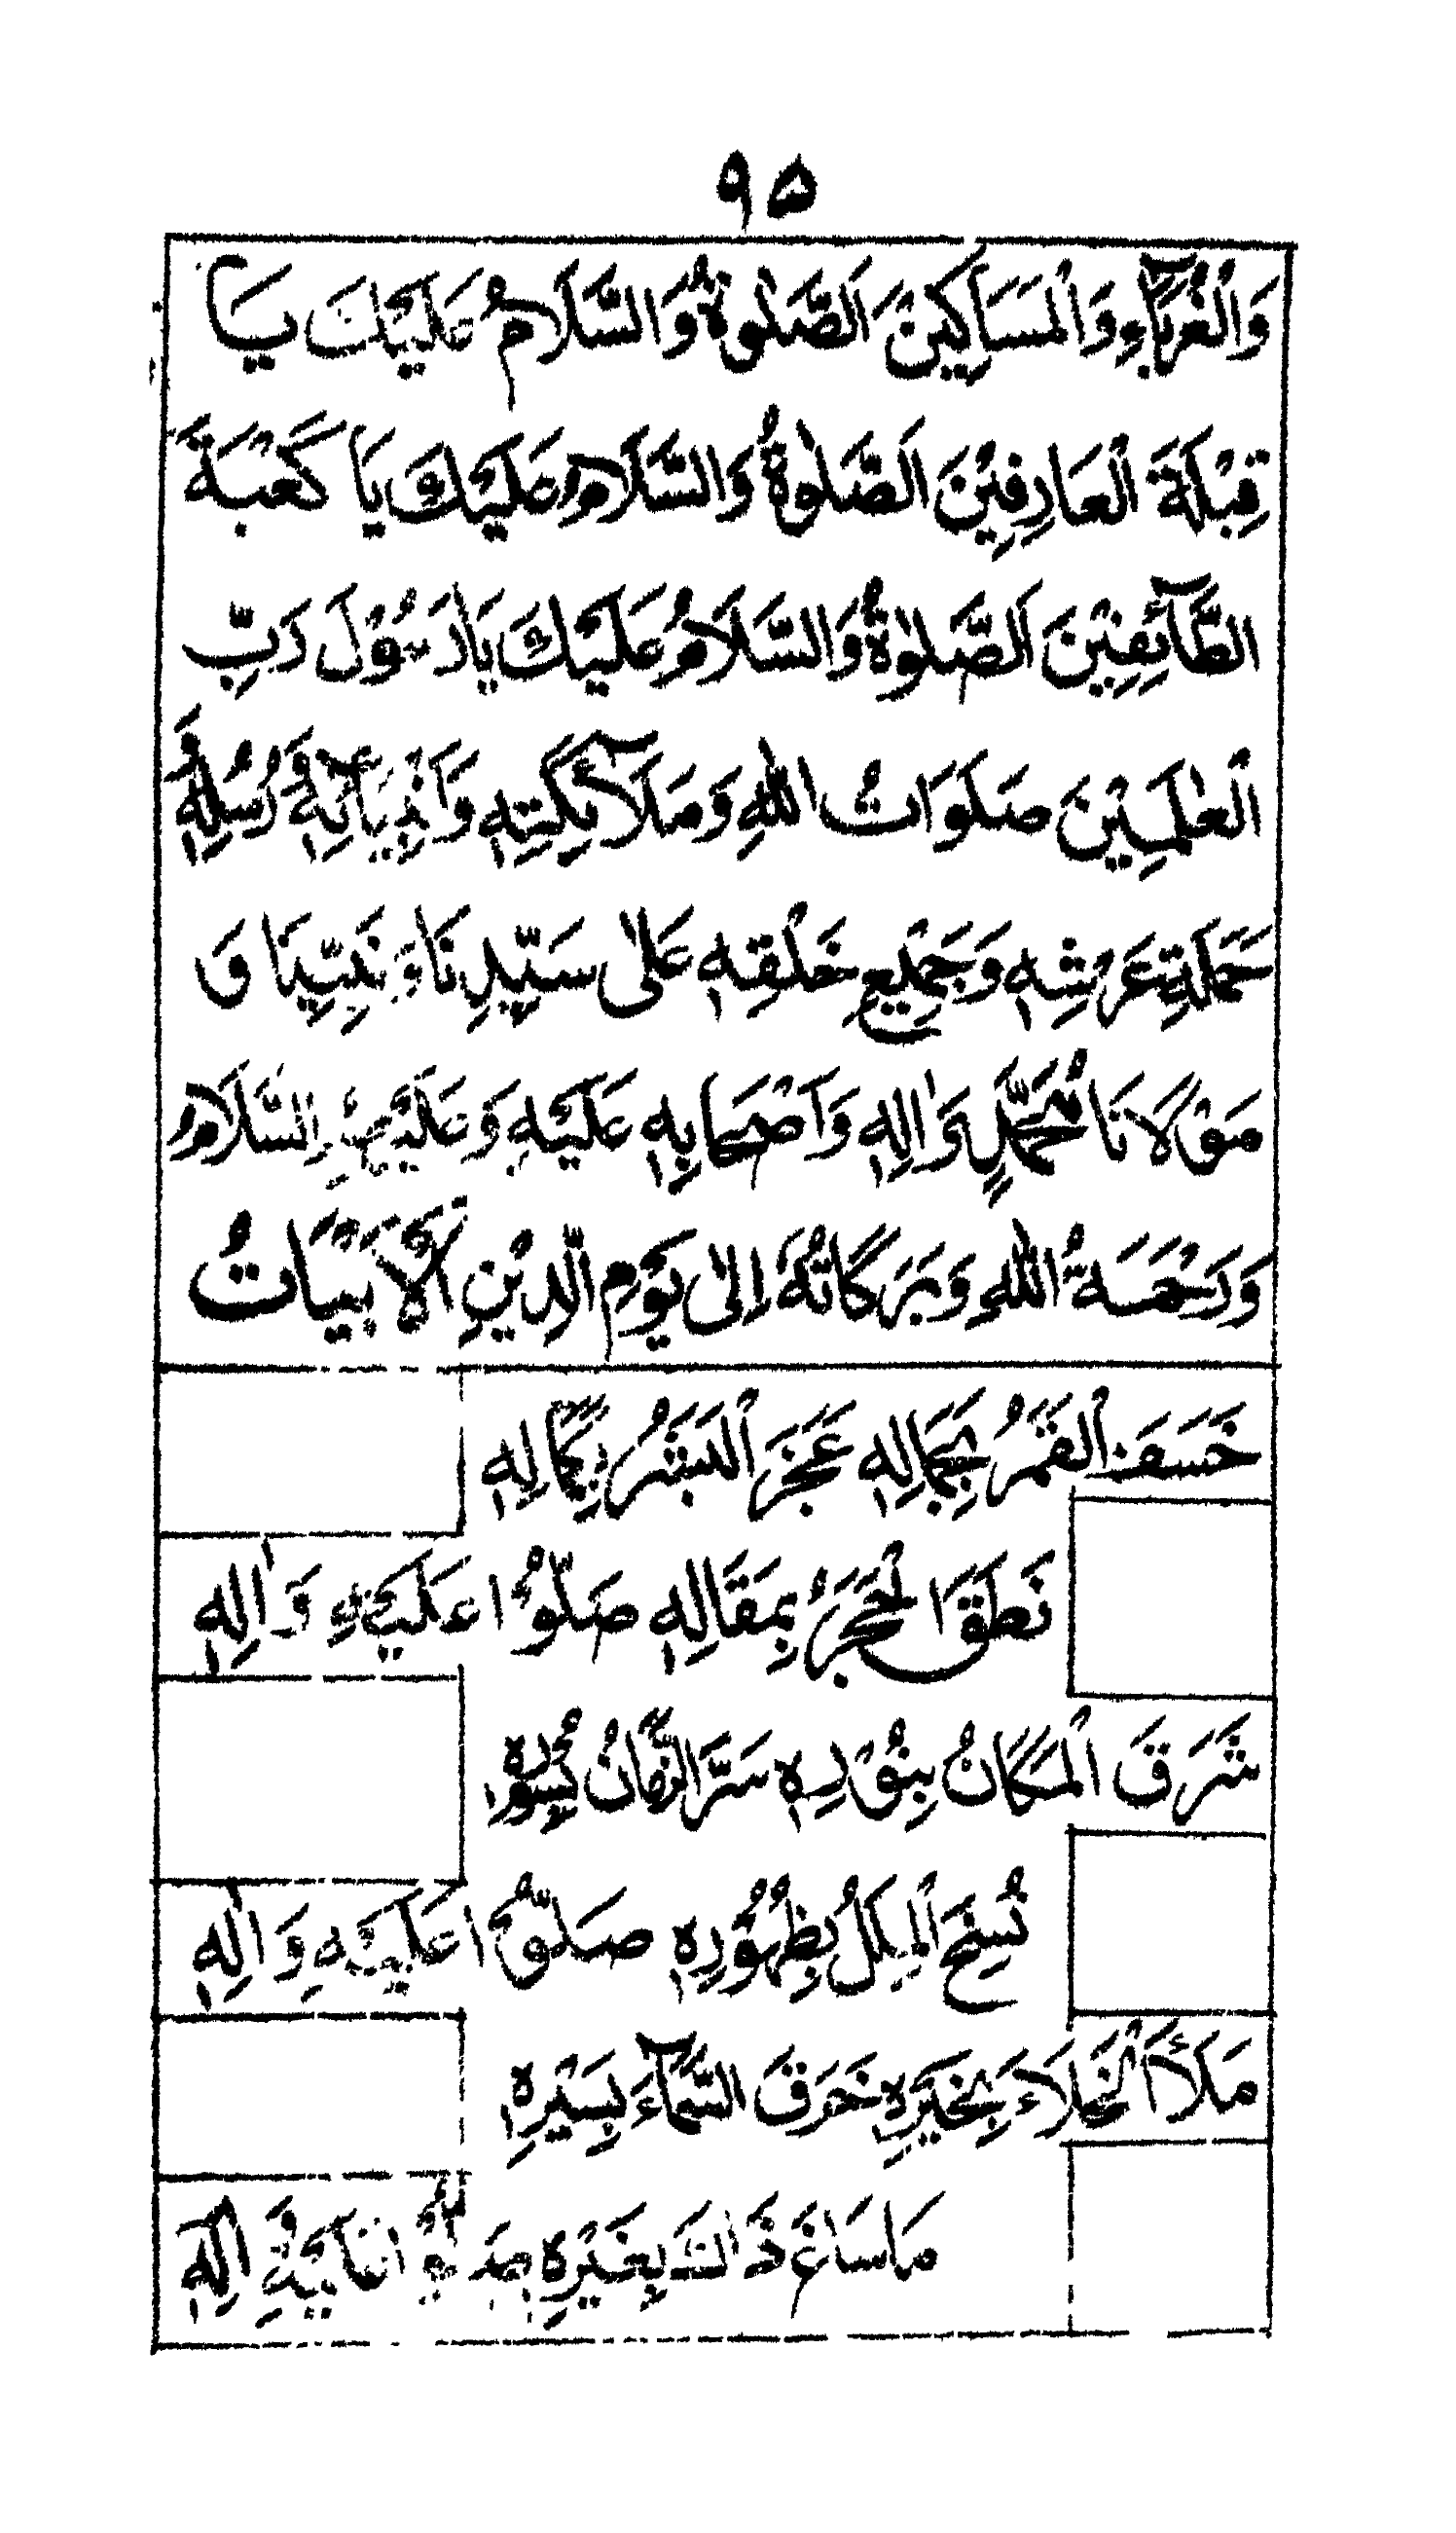 ٩٥
وَالْغُرَبَآءِ وَالْمَسَاكِيْنَ اَلصَّلٰوةُ وَالسَّلَامُ عَلَيْكَ يَا
قِبْلَةَ الْعَارِفِيْنَ اَلصَّلٰوةُ وَالسَّلَامُ عَلَيْكَ يَا كَعْبَةَ
الطَّآئِفِيْنَ اَلصَّلٰوةُ وَالسَّلَامُ عَلَيْكَ يَا رَسُوْلَ رَبِّ
الْعٰلَمِيْنَ صَلَوَاتُ اللّٰهِ وَمَلَآئِكَتِهٖ وَاَنْبِيَآئِهٖ وَرُسُلِهٖ وَ
حَمَلَةِ عَرْشِهٖ وَجَمِيْعِ خَلْقِهٖ عَلٰى سَيِّدِنَا وَنَبِيِّنَا وَ
مَوْلَانَا مُحَمَّدٍ وَّاٰلِهٖ وَاَصْحَابِهٖ عَلَيْهِ وَعَلَيْهِمُ السَّلَامُ
وَرَحْمَةُ اللّٰهِ وَبَرَكَاتُهٗ اِلٰى يَوْمِ الدِّيْنِ اَلْاَبْيَاتُ
خَسَفَ الْقَمَرُ بِجَمَالِهٖ عَجَزَ الْبَشَرُ بِكَمَالِهٖ
نَطَقَ الْحَجَرُ بِمَقَالِهٖ صَلُّوْا عَلَيْهِ وَاٰلِهٖ
شَرَقَ الْمَكَانُ بِنُوْرِهٖ سَرَّ الزَّمَانُ بِسُرُوْرِهٖ
نُسِخَ الْمِلَلُ بِظُهُوْرِهٖ صَلُّوْا عَلَيْهِ وَاٰلِهٖ
مَلَأَ الْخَلَاءَ بِخَيْرِهٖ خَرَقَ السَّمَآءَ بِسَيْرِهٖ
مَا سَاغَ ذَاكَ بِغَيْرِهٖ صَلُّوْا عَلَيْهِ وَاٰلِهٖ